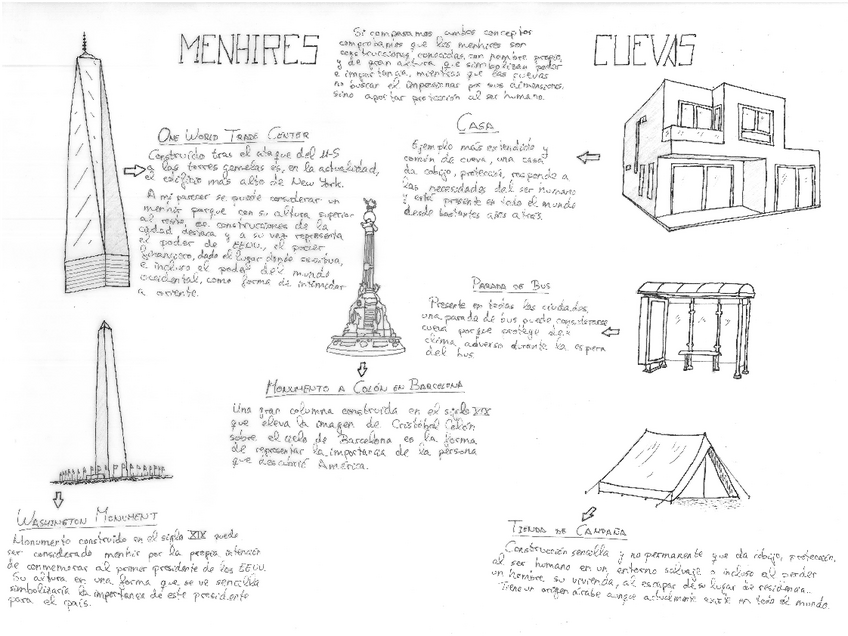 MENHIRES
Si comparamos ambos conceptos
comprobamos que los menhires son
construcciones conocidas, con nombre propio
y de gran altura, que simbolizan poder
e importancia, mientras que las cuevas
no buscan el impresionar por sus dimensiones,
sino aportar protección al ser humano.
CUEVAS
ONE WORLD TRADE CENTER
Construido tras el ataque del 11-S
a las torres gemelas es, en la actualidad,
el edificio más alto de New York.
A mi parecer se puede considerar un
menhir porque con su altura superior
al resto de construcciones de la
ciudad destaca y a su vez representa
el poder de EEUU, el poder
financiero, dado el lugar donde se
e incluso el poder del mundo
occidental, como forma de intimidar
a oriente.
CASA
Ejemplo más extendido y
común de cueva, una casa
da cobijo, protección, responde a
las necesidades del ser humano
y está presente en todo el mundo
desde bastantes años atrás.
PARADA DE BUS
Presente en todas las ciudades,
una parada de bus puede considerarse
cueva porque protege del
clima adverso durante la espera
del bus.
MONUMENTO A COLÓN EN BARCELONA
Una gran columna construida en el siglo XIX
que eleva la imagen de Cristóbal Colón
sobre el cielo de Barcelona es la forma
de representar la importancia de la persona
que descubrió América.
WASHINGTON MONUMENT
Monumento construido en el siglo XIX puede
ser considerado menhir por la propia intención
de conmemorar al primer presidente de los EEUU.
Su altura en una forma que se ve sencilla
simbolizaría la importancia de este presidente
para el país.
TIENDA DE CAMPAÑA
Construcción sencilla y no permanente que da cobijo, protección,
al ser humano en un entorno salvaje o incluso al perder
un hombre su vivienda, al escapar de su lugar de residencia.
Tiene un origen árabe aunque actualmente existe en todo el mundo.